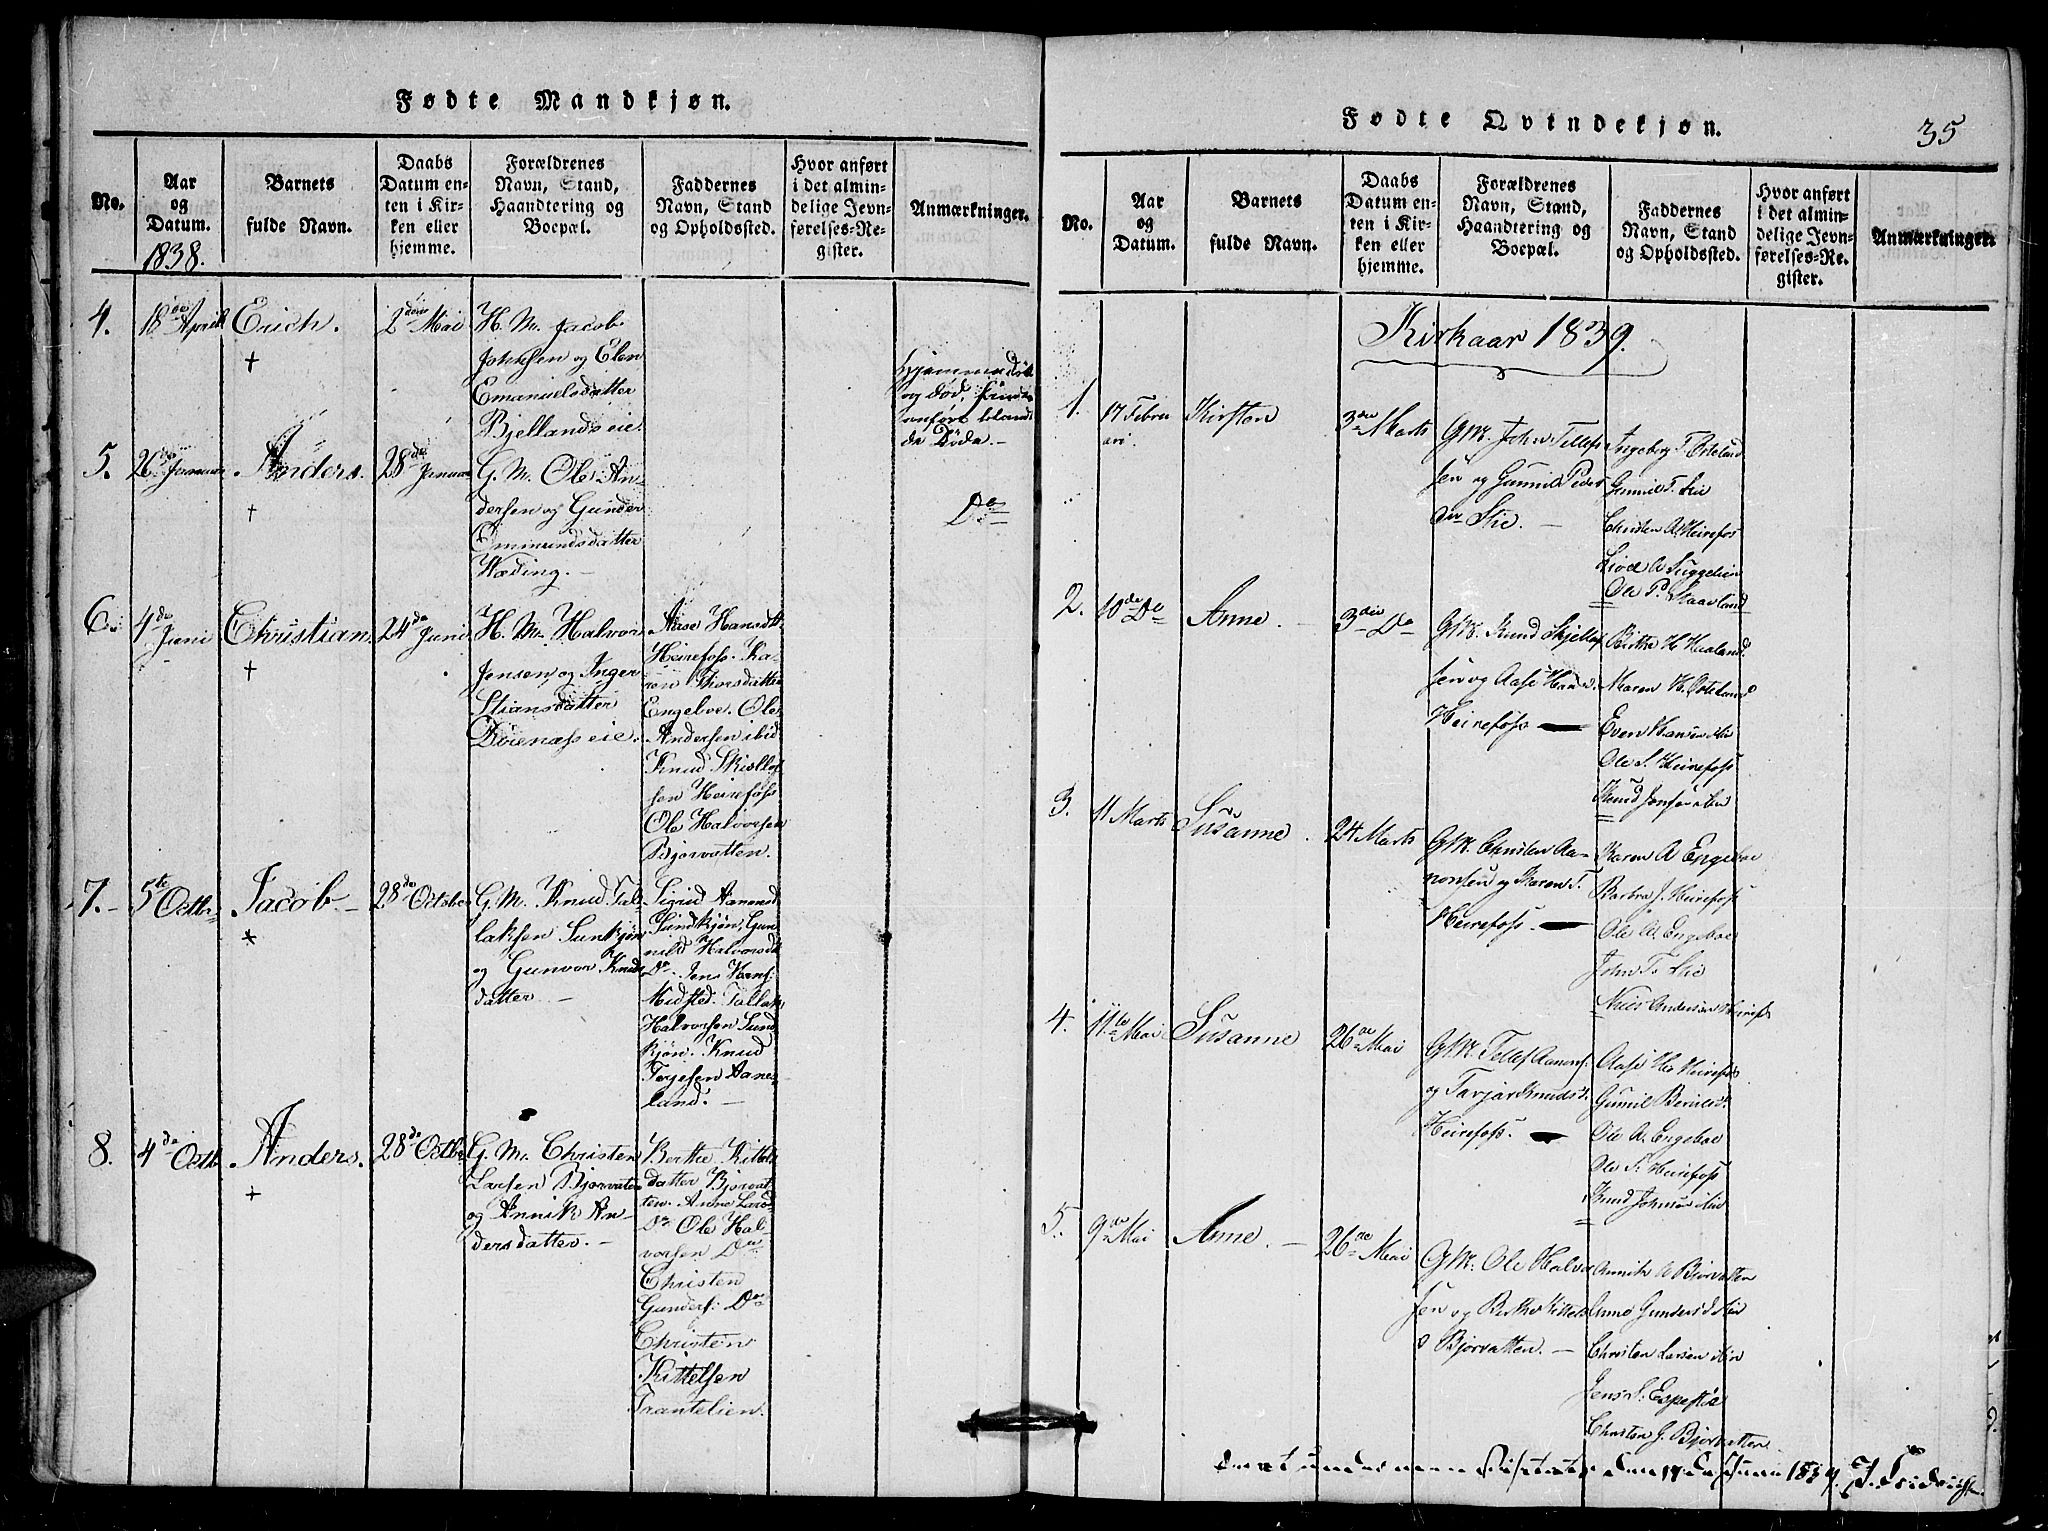 Fødte Mandkjøn.
No.
Aar
og
Datum.
1838.
Barnets
fulde Navn.
Daabs
Datum en-
ten i Kir-
ken eller
hjemme.
Forældrenes
Navn, Stand,
Haandtering og
Boepæl.
Faddernes
Navn, Stand
og Opholdssted.
Hvor anført
i det almin-
delige Jevn-
førelses-Re-
gister.
Anmærkninger.
4.
18de April
Erich.
†
2den Mai
H. M. Jacob
Johnsen og Elen
Emanuelsdatter
Bjellandseie.
og død,
anført blandt
de Døde.
5.
26de Januar
Anders.
†
28de Januar
G. M. Ole An-
dersen og Gunder
Ommundsdatter
Væding.
Do
6.
4de
Juni
Christian.
†
24de Juni
H. M. Halvor
Jensen og Inger
Stiansdatter
Døienæsseie.
Aase Hansdtt.
Heirefoss. Ka-
ren Thorsdatter
Engelve. Ole
Andersen ibid
Knud Skiellof
sen Heirefoss
Ole Halvorsen
Bjorvatten.
7.
5te Octbr
Jacob
28de October
G. M. Knud Tal-
laksen Sunkjøn
og Gunvor Knuds
datter.
Sigrid Aanensd
Sundkjøn, Gun-
nild Halvorsd
Do. Jens
Midsted. Tallak
Halvorsen Sund
kjøn. Knud
Terjesen Aane-
land.
8.
4de Octb.
Anders.
†
28de Octbr
G. M. Christen
Larsen Bjorvatten
og Annik An-
dersdatter.
Berthe Kittels
datter Bjorvat-
ten. Anne Larsd
Do Ole Hal-
vorsen Do
Christen
Gunders: Do
Christen
Kittelsen
Trantelien.
Fødte Qvindekjøn.
35
No.
Aar
og
Datum.
Barnets
fulde Navn.
Daabs
Datum en-
ten i Kir-
ken eller
hjemme.
Forældrenes
Navn, Stand,
Haandtering og
Boepæl.
Faddernes
Navn, Stand
og Opholdssted.
Hvor anført
i det almin-
delige Jevn-
førelses-Re-
gister.
Anmærkninger.
Kirkaar 1839.
1.
17 Febru
ari
Kirsten
3die Marts
G M. John Tellef
sen og Gunnil Peders
dtr Lie.
Ingeborg T. Oseland
Gunnil T. Lie
Christen A. Heirefos
Ole P. Skaarland
2.
10de Do
Anne
3die Do
G M. Knud Skjellof
sen og Aase Hans d.
Heirefoss
Birthe H.
Maren H. Oseland
Even Hansen
Ole S. Heirefoss
Knud
3.
11 Marts
Susanne
24 Marts
G M. Christen Aa-
nonsen og Karen T.
Heirefoss.
Karen A Engeboe
Barbra J. Heirefoss
Ole A. Engeboe
John T. Lie
Niels Andersen Heirefos
4.
11te Mai
Susanne
26de Mai
G M. Tellef Aanons.
og Tarjær Knuds d.
Heirefoss.
Aase H. Heirefos
Gunnil
Ole A. Engeboe
Ole S. Heirefoss
Knud Johnsen
5.
9de Mai
Anne.
26de Mai
G M. Ole Halvor
sen og Birthe Kittels
d Bjorvatten.
Annik A Bjorvatten
Anne Gunders d
Christen Larsen
Jens S. Espestøl
Christen J. Bjorvatten
1839.